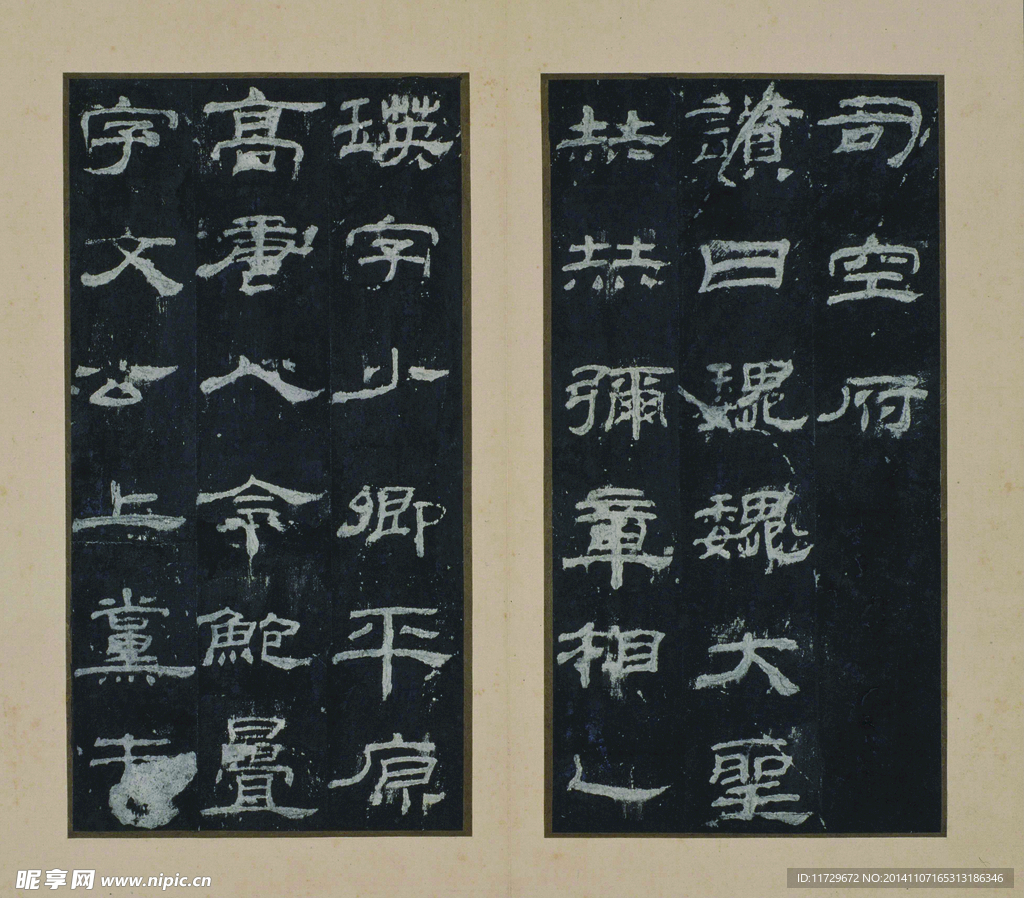 司空府
讃曰巍巍大聖
赫赫彌章相乙
瑛字少卿平原
高唐人令鮑疊
字文公上黨
昵享网 www.nipic.cn
ID:11729672 NO:20141107165313186346